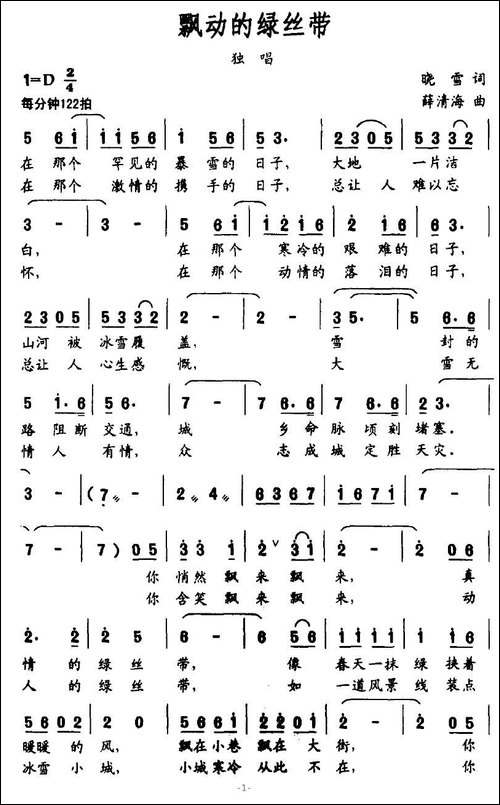 飘动的绿丝带
独 唱
1=D 2/4
晓 雪 词
每分钟122拍
薛清海 曲
5 6 i | i i 5 6 | i i 5 6 | 5 3· | 2 3 0 5 | 5 3 3 2 |
在 那个 罕见的 暴雪的 日子, 大地 一片洁
在 那个 激情的 携手的 日子, 总让 人 难以忘
3 - | 3 - | 5 6 i | i 2 i 6 | i 2 i 6 | 6 3· |
白, 在 那个 寒冷的 艰难的 日子,
怀, 在 那个 动情的 落泪的 日子,
2 3 0 5 | 5 3 3 2 | 2 - | 2 - | 3· 3· | 5 6·6 |
山河 被 冰雪履 盖, 雪 封的
总让 人 心生感 慨, 大 雪无
5 1·6 | 5 6· | 7 - | 7 6·6 | 7 6·6 | 2 3· |
路 阻断 交通, 城 乡命 脉 顷刻 堵塞.
情 人 有情, 众 志成 城 定胜 天灾.
3 - | (7 - | 2 4 | 6 3 6 7 | i 6 7 i | 7 - |
7 - | 7) 0 5 | 3 3 i | 2 ∨ 3 i | 2 - | 2 0 6 |
你 悄然 飘 来 飘 来, 真
你 含笑 飘 来 飘 来, 动
2· 2 | 2 5 5 | 6 - | 6 5 6 | i i i i | i i 6 5 |
情 的 绿 丝 带, 像 春天一抹 绿 挟着
人 的 绿 丝 带, 如 一道风景 线 装点
5 6 0 2 | 2 0 | 5 6 6 i | 2 2 0 i | 2 - | 2 0 5 |
暖暖 的 风, 飘在小巷 飘在 大 街, 你
冰雪 小 城, 小城寒冷 从此 不 在, 你
-1-